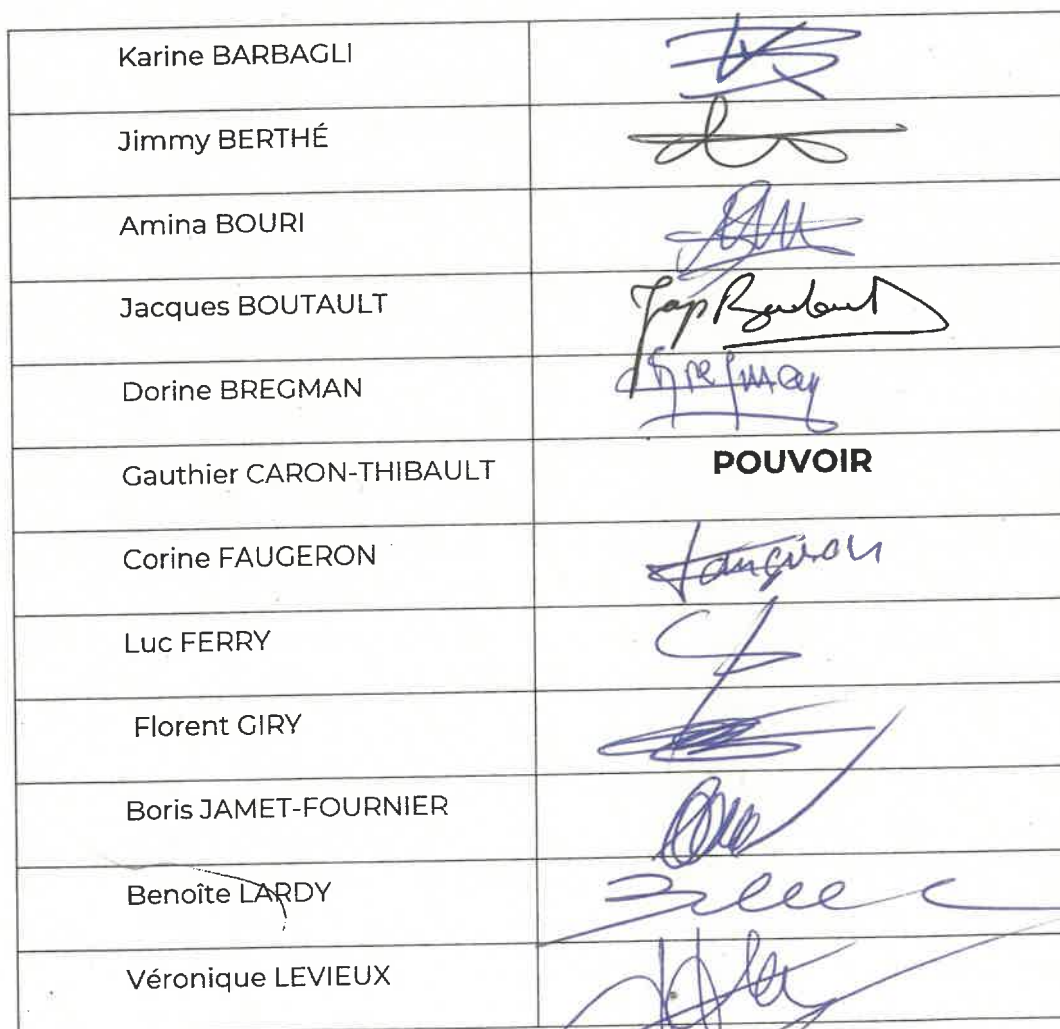 Karine BARBAGLI
Jimmy BERTHÉ
Amina BOURI
Jacques BOUTAULT
Dorine BREGMAN
Gauthier CARON-THIBAULT POUVOIR
Corine FAUGERON
Luc FERRY
Florent GIRY
Boris JAMET-FOURNIER
Benoîte LARDY
Véronique LEVIEUX